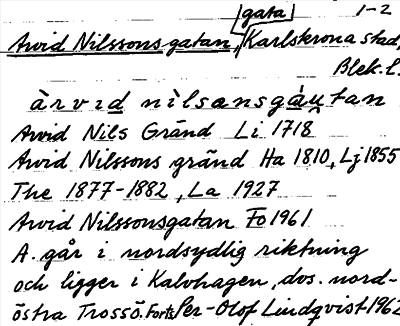 gata 1-2
Arvid Nilssons gatan, Karlskrona stad,
Blek. l.
àrvid nìlsansgàųtan
Arvid Nils Gränd Li 1718
Arvid Nilssons gränd Ha 1810, Lj 1855
The 1877-1882, La 1927
Arvid Nilssonsgatan Fo 1961
A. går i nordsydlig riktning
och ligger i Kalvhagen, dvs. nord-
östra Trossö. Forts Per-Olof Lindqvist 1962